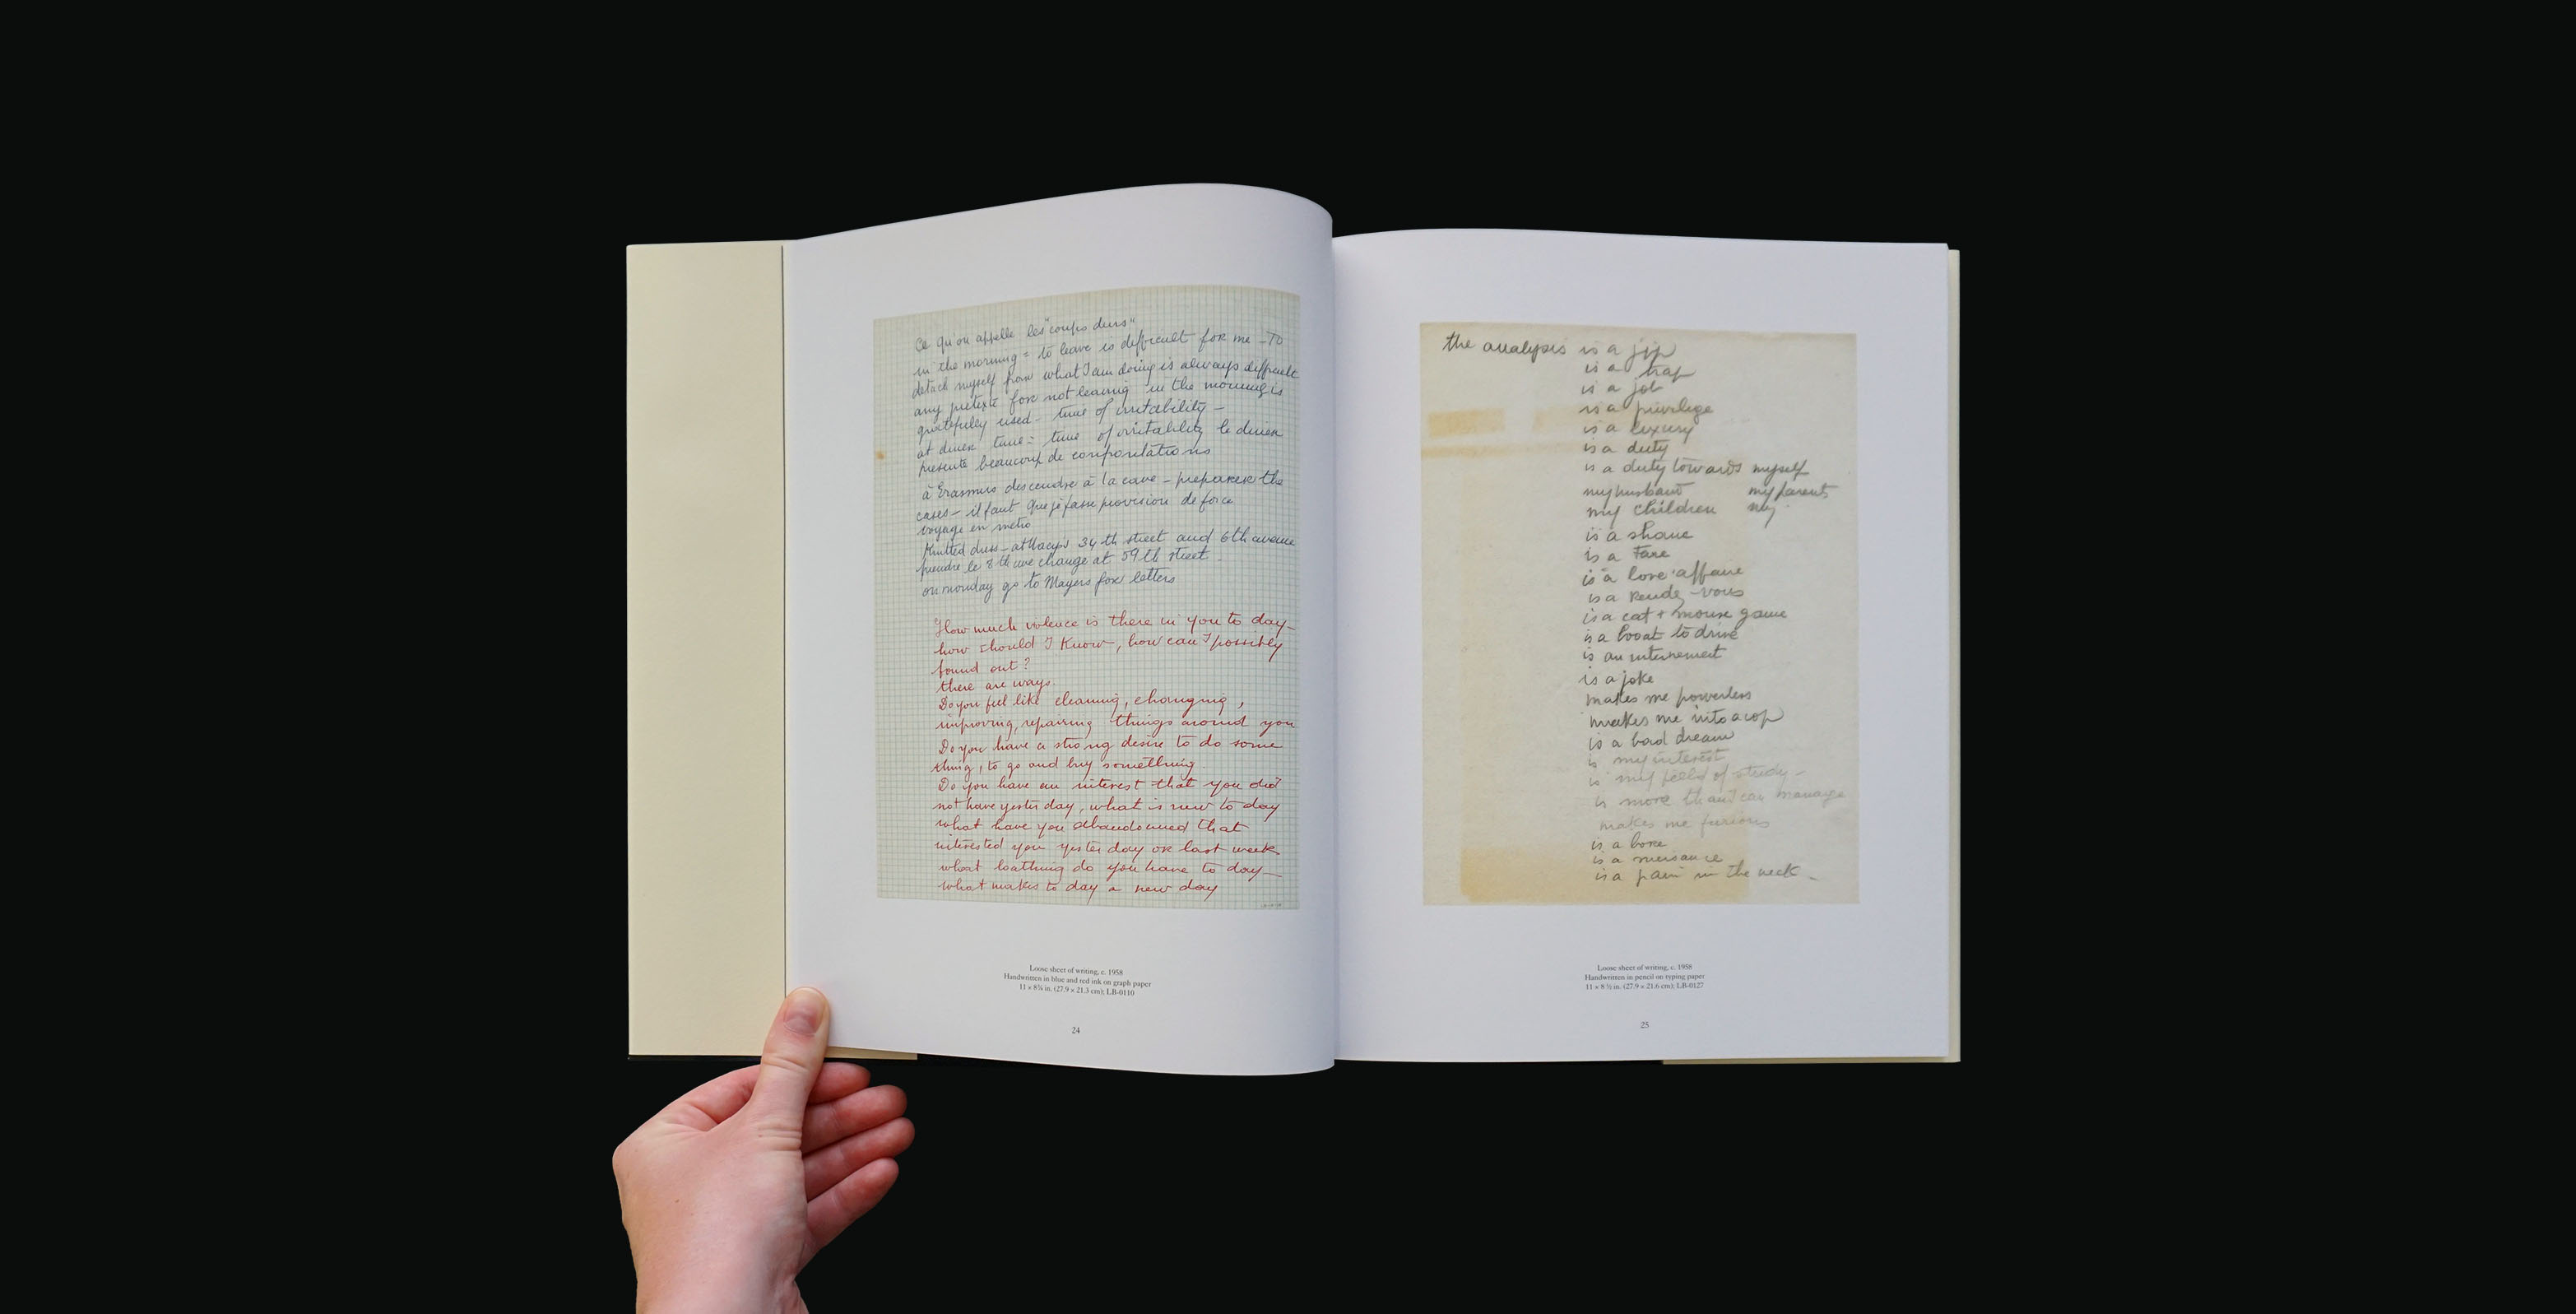 Ce qu'on appelle les "coups durs"
in the morning = to leave is difficult for me - To
detach myself from what I am doing is always difficult
any pretexte for not leaving in the morning is
gratefully used - time of irritability -
at diner time = time of irritability le diner
présente beaucoup de confrontations
à Erasmus descendre à la cave - preparer the
cases - il faut que je fasse provision de force
voyage en metro
Knitted dress - at Macys 34 th street and 6th avenue
prendre le 8 th ave change at 59th street -
on monday go to Mayers for letters
How much violence is there in you to day -
how should I Know -, how can I possibly
found out ?
there are ways.
Do you feel like cleaning, changing,
improving, repairing things around you
Do you have a strong desire to do some
thing, to go and buy something.
Do you have an interest that you did
not have yester day, what is new to day
what have you abandonned that
interested you yester day or last week
what loathing do you have to day -
what makes to day a new day
Loose sheet of writing, c. 1958
Handwritten in blue and red ink on graph paper
11 × 8⅜ in. (27.9 × 21.3 cm); LB-0110
24
the analysis is a jip
is a trap
is a job
is a privilege
is a luxury
is a duty
is a duty towards myself
my husband my parents
my children my
is a shame
is a farce
is a love affaire
is a rendez-vous
is a cat + mouse game
is a boat to drive
is an internement
is a joke
makes me powerless
makes me into a cop
is a bad dream
is my interest
is my field of study -
is more than I can manage
makes me furious
is a bore
is a nuisance
is a pain in the neck -
Loose sheet of writing, c. 1958
Handwritten in pencil on typing paper
11 × 8 ½ in. (27.9 × 21.6 cm); LB-0127
25